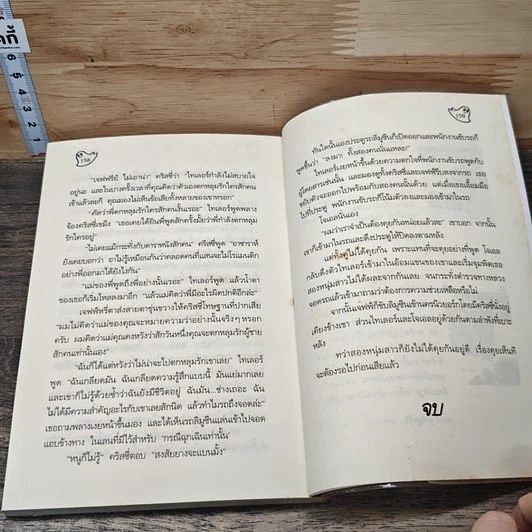 158
"เจฟฟรีย์ ไม่เอาน่า" คริสซี่ว่า "ไทเลอร์กำลังไม่สบายใจ
อยู่นะ และในบางครั้งเวลาที่คุณคิดว่าตัวเองตกหลุมรักใครสักคน
เข้าแล้วละก็ คุณมองไม่เห็นข้อเสียทั้งหลายของเขาหรอก"
"คิดว่าพี่ตกหลุมรักใครสักคนงั้นเรอะ" ไทเลอร์พูดพลาง
จ้องคริสซี่เขม็ง "เธอเคยได้ยินพี่พูดสักครั้งมั้ยว่าพี่กำลังตกหลุม
รักใครอยู่"
"ไม่เคยแม้กระทั่งกับดาราหนังสักคน" คริสซี่พูด "อาซาราห์
ยังเคยบอกว่า อาไม่รู้เหมือนกันว่าตลอดคนที่แสนจะไม่โรแมนติก
อย่างพี่ออกมาได้ยังไงกัน"
"แม่ของพี่พูดถึงพี่อย่างนั้นเรอะ" ไทเลอร์พูด แล้วน้ำตา
ของเธอก็เริ่มไหลลงมาอีก "แล้วแม่คิดว่าพี่มีอะไรผิดปกติอีกล่ะ"
เจฟฟรี่ตาส่งสายตาขุ่นขวางให้คริสซี่โทษฐานที่ปากเสีย
"ผมไม่คิดว่าแม่ของคุณจะหมายความว่าอย่างนั้นจริงๆ หรอก
ครับ ผมคิดว่าแม่คุณคงหวังว่าสักวันหนึ่งคุณจะตกหลุมรักผู้ชาย
สักคนเท่านั้นเอง"
"ฉันก็ได้แต่หวังว่าไม่น่าจะไปตกหลุมรักเขาเลย" ไทเลอร์
พูด "ฉันเกลียดมัน ฉันเกลียดความรู้สึกแบบนี้ มันแย่มากเลย
และเขาก็ไม่รู้ด้วยซ้ำว่าฉันยังมีชีวิตอยู่ ฉันมัน...ช่างเถอะ ฉัน
ไม่ได้มีความสำคัญอะไรกับเขาเลยสักนิด แล้วทำไมรถถึงจอดล่ะ"
เธอถามพลางเงยหน้าขึ้นมอง และได้เห็นรถลิมูซีนแล่นเข้าไปจอด
แอบข้างทาง ในเลนที่มีไว้สำหรับ 'กรณีฉุกเฉินเท่านั้น'
"หนูก็ไม่รู้" คริสซี่ตอบ "สงสัยยางจะแบนมั้ง"
159
ทันใดนั้นเองประตูรถลิมูซีนก็เปิดออกและพนักงานขับรถก็
พูดขึ้นว่า "ลงมา ทั้งสองคนนั่นแหละ"
ไทเลอร์เงยหน้าขึ้นด้วยความตกใจที่พนักงานขับรถพูดกับ
ผู้โดยสารเช่นนั้น และมองดูคริสซี่และเจฟฟรีย์ลงจากรถ เธอ
ขยับตัวจะออกไปพร้อมกับสองคนนั้นด้วย แต่เมื่อเธอเอื้อมมือ
ไปที่ประตู พนักงานขับรถก็โน้มตัวลงและเข้ามานั่งในรถ
โจเอลนั่นเอง
"ผมว่าเราจำเป็นต้องคุยกันหน่อยแล้วละ" เขาบอก จากนั้น
เขาก็เข้ามาในรถและดึงประตูให้ปิดลงตามหลัง
แต่ทั้งคู่ไม่ได้คุยกัน เพราะแทนที่จะคุยอย่างที่พูด โจเอล
กลับดึงตัวไทเลอร์เข้ามาในอ้อมแขนของเขาและเริ่มจุมพิตเธอ
สองหนุ่มสาวไม่ได้ผละจากกันเลย จนกระทั่งตำรวจทางหลวง
จอดรถแล้วเข้ามาถามว่าต้องการความช่วยเหลือหรือไม่
จากนั้นเจฟฟ์ก็ขับลิมูซีนเข้านครนิวยอร์กโดยมีคริสซี่นั่งอยู่
เคียงข้างเขา ส่วนไทเลอร์และโจเอลอยู่ด้วยกันตามลำพังที่เบาะ
หลัง
ทว่าสองหนุ่มสาวก็ยังไม่ได้คุยกันอยู่ดี เรื่องคุยเห็นที
จะต้องรอไปก่อนเสียแล้ว
จบ
6
5
4
3
2
1